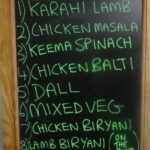 1) KARAHI LAMB
2) CHICKEN MASALA
3) KEEMA SPINACH
4) CHICKEN BALTI
5) DALL
6) MIXED VEG
7) CHICKEN BIRYANI
8) LAMB BIRYANI (ON THE